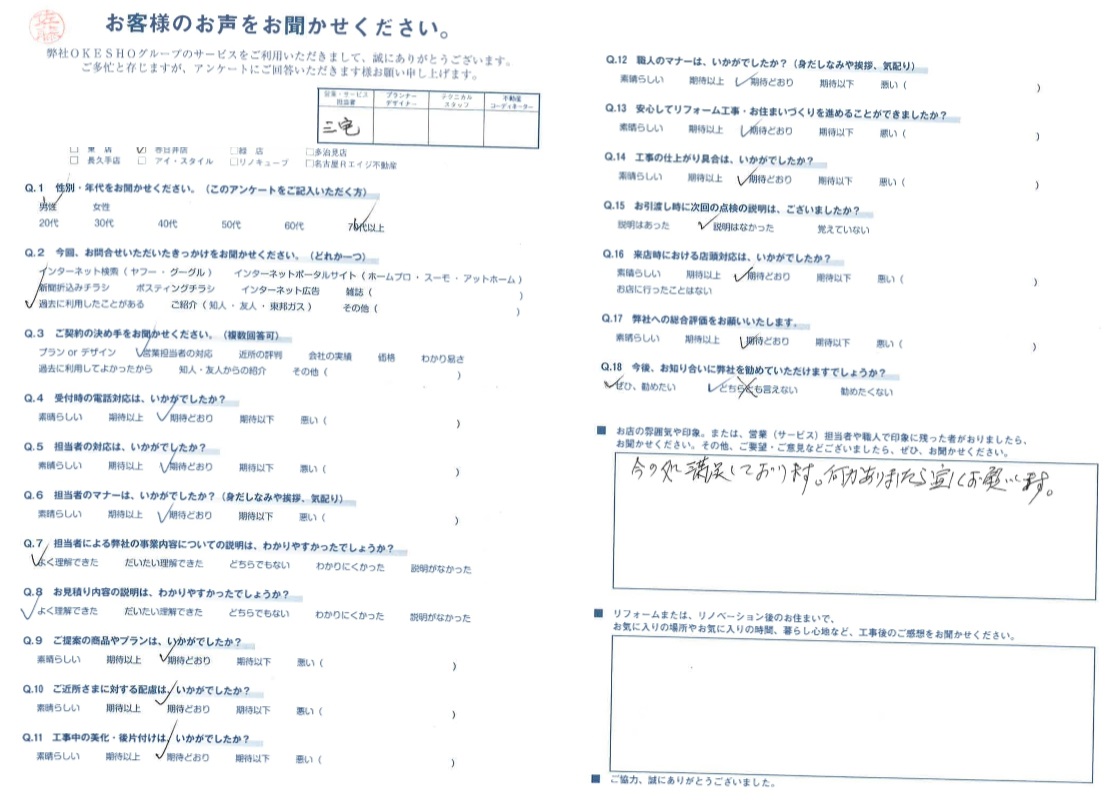 佐藤
お客様のお声をお聞かせください。
弊社OKESHOグループのサービスをご利用いただきまして、誠にありがとうございます。
ご多忙と存じますが、アンケートにご回答いただきます様お願い申し上げます。
営業・サービス担当者 プランナーデザイナー テクニカルスタッフ 不動産コーディネーター
三宅
□ 東店 ☑ 春日井店 □緑店 □多治見店
□ 長久手店 □ アイ・スタイル □リノキューブ □名古屋Rエイジ不動産
Q.1 性別・年代をお聞かせください。（このアンケートをご記入いただく方）
男性 女性
20代 30代 40代 50代 60代 70代以上
Q.2 今回、お問合せいただいたきっかけをお聞かせください。（どれか一つ）
インターネット検索（ヤフー・グーグル） インターネットポータルサイト（ホームプロ・スーモ・アットホーム）
新聞折込みチラシ ポスティングチラシ インターネット広告 雑誌（ ）
過去に利用したことがある ご紹介（知人・友人・東邦ガス） その他（ ）
Q.3 ご契約の決め手をお聞かせください。（複数回答可）
プラン or デザイン 営業担当者の対応 近所の評判 会社の実績 価格 わかり易さ
過去に利用してよかったから 知人・友人からの紹介 その他（ ）
Q.4 受付時の電話対応は、いかがでしたか？
素晴らしい 期待以上 期待どおり 期待以下 悪い（ ）
Q.5 担当者の対応は、いかがでしたか？
素晴らしい 期待以上 期待どおり 期待以下 悪い（ ）
Q.6 担当者のマナーは、いかがでしたか？（身だしなみや挨拶、気配り）
素晴らしい 期待以上 期待どおり 期待以下 悪い（ ）
Q.7 担当者による弊社の事業内容についての説明は、わかりやすかったでしょうか？
よく理解できた だいたい理解できた どちらでもない わかりにくかった 説明がなかった
Q.8 お見積り内容の説明は、わかりやすかったでしょうか？
よく理解できた だいたい理解できた どちらでもない わかりにくかった 説明がなかった
Q.9 ご提案の商品やプランは、いかがでしたか？
素晴らしい 期待以上 期待どおり 期待以下 悪い（ ）
Q.10 ご近所さまに対する配慮は、いかがでしたか？
素晴らしい 期待以上 期待どおり 期待以下 悪い（ ）
Q.11 工事中の美化・後片付けは、いかがでしたか？
素晴らしい 期待以上 期待どおり 期待以下 悪い（ ）
Q.12 職人のマナーは、いかがでしたか？（身だしなみや挨拶、気配り）
素晴らしい 期待以上 期待どおり 期待以下 悪い（ ）
Q.13 安心してリフォーム工事・お住まいづくりを進めることができましたか？
素晴らしい 期待以上 期待どおり 期待以下 悪い（ ）
Q.14 工事の仕上がり具合は、いかがでしたか？
素晴らしい 期待以上 期待どおり 期待以下 悪い（ ）
Q.15 お引渡し時に次回の点検の説明は、ございましたか？
説明はあった 説明はなかった 覚えていない
Q.16 来店時における店頭対応は、いかがでしたか？
素晴らしい 期待以上 期待どおり 期待以下 悪い（ ）
お店に行ったことはない
Q.17 弊社への総合評価をお願いいたします。
素晴らしい 期待以上 期待どおり 期待以下 悪い（ ）
Q.18 今後、お知り合いに弊社を勧めていただけますでしょうか？
ぜひ、勧めたい どちらとも言えない 勧めたくない
■ お店の雰囲気や印象。または、営業（サービス）担当者や職人で印象に残った者がおりましたら、
お聞かせください。その他、ご要望・ご意見などございましたら、ぜひ、お聞かせください。
今の処満足しております。何かありましたら宜しくお願いします。
■ リフォームまたは、リノベーション後のお住まいで、
お気に入りの場所やお気に入りの時間、暮らし心地など、工事後のご感想をお聞かせください。
■ ご協力、誠にありがとうございました。